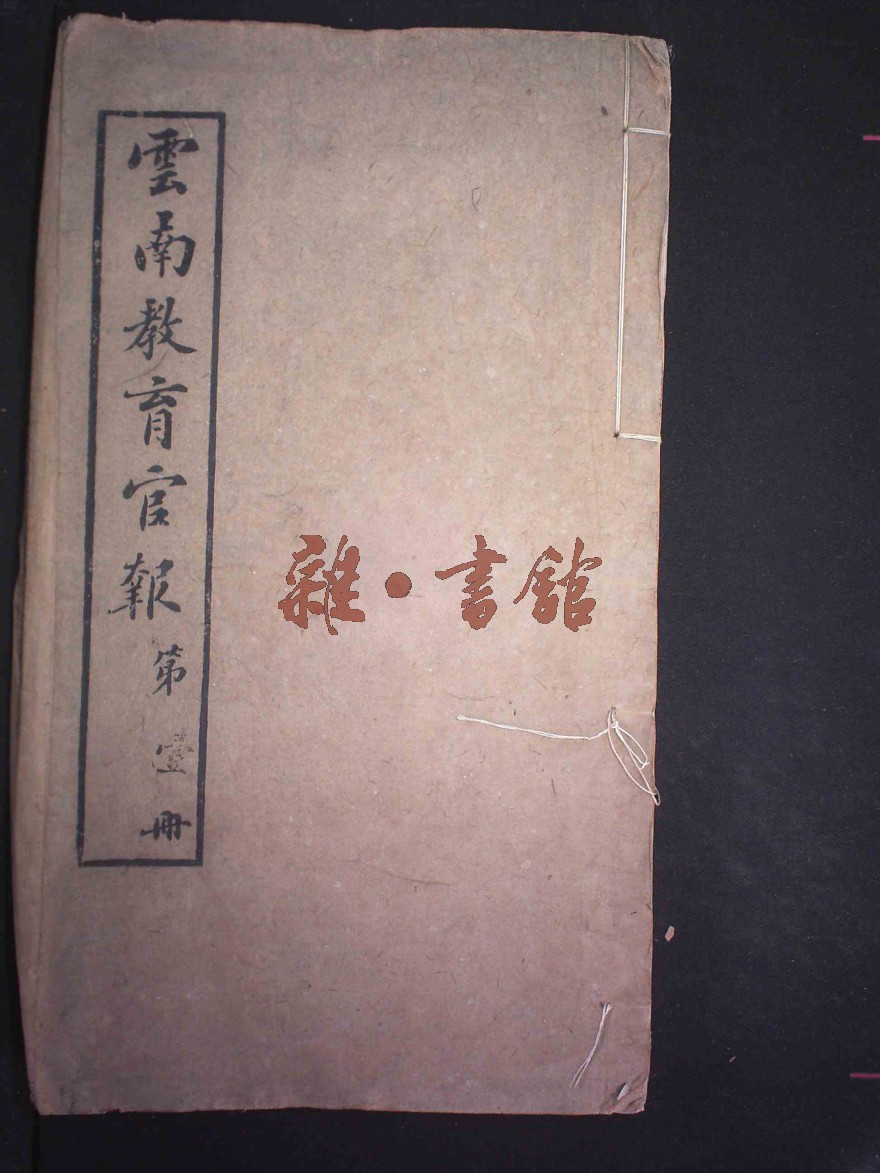 雲南教育官報第壹冊
雜·書館